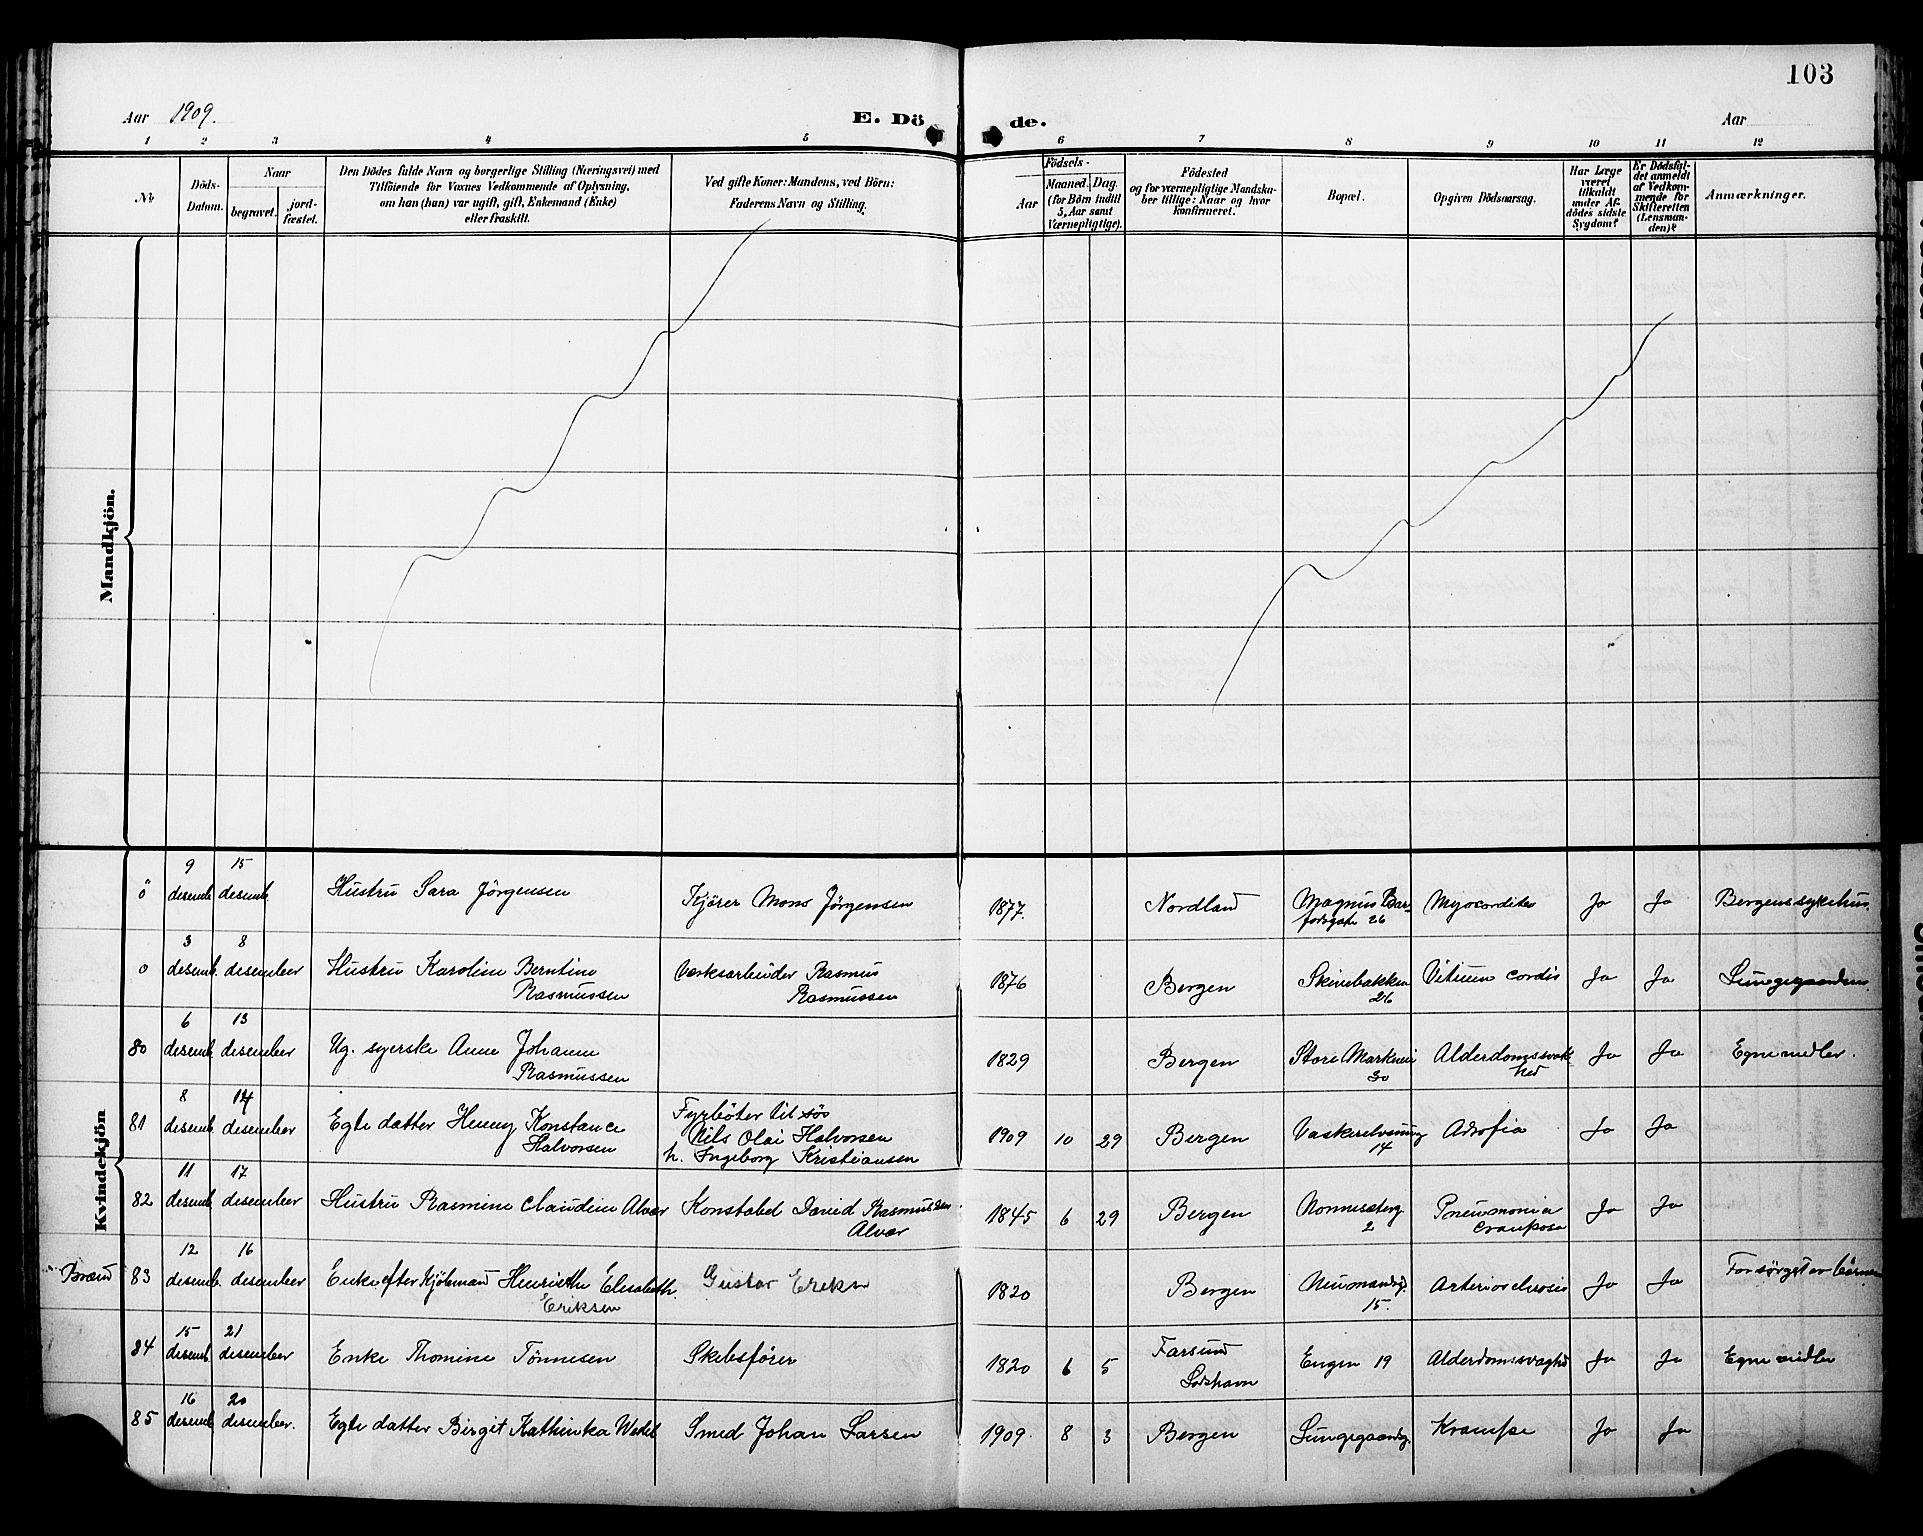 103
Aar 1909.
E. Dö de.
Aar
1 2 3 4 5 6 7 8 9 10 11 12
No
Döds-
Datum.
Naar
begravet.
jord-
fæstet.
Den Dödes fulde Navn og borgerlige Stilling (Næringsvei) med
Tilföiende for Voxnes Vedkommende af Oplysning,
om han (hun) var ugift, gift, Enkemand (Enke)
eller fraskilt.
Ved gifte Koner: Mandens, ved Börn:
Faderens Navn og Stilling.
Födsels-
Aar
Maaned. Dag.
(for Börn indtil
5 Aar samt
Værnepligtige).
Födested
og for værnepligtige Mandska-
ber tillige: Naar og hvor
konfirmeret.
Bopæl.
Opgiven Dödsaarsag.
Har Læge
været
tilkaldt
under Af-
dödes sidste
Sygdom?
Er Dödsfal-
det anmeldt
af Vedkom-
mende for
Skifteretten
(Lensman-
den)?
Anmærkninger.
Mandkjön.
Kvindekjön
0 9 desemb. 15 desemb. Hustru Sara Jörgensen Kjörer Mons Jörgensen 1877. Nordland Magnus Bar-
fodsgate 26 Myocorditis Ja Ja Bergens sykehus.
0 3 desemb. 8 desember Hustru Karoline Berntine
Rasmussen Verksarbeider Rasmus
Rasmussen 1876 Bergen Skivebakken
26 Vitium cordis Ja Ja Lungegaardens.
80 6 desemb. 13 desember Ug. syerske Anne Johanne
Rasmussen 1829 Bergen Store Markevei
30 Alderdomssvak
hed Ja Ja Egne midler.
81 8 desemb. 14 desember Egte datter Henny Konstance
Halvorsen Fyrböter til søs
Nils Olai Halvorsen
h. Ingeborg Kristiansen 1909 10 29 Bergen
14 Atrofia Ja Ja
82 11 desemb. 17 desember Hustru Rasmine Claudine Alvær Konstabel David Rasmussen
Alvær 1845 6 29 Bergen Nonnesæterg.
2 Pneumonia
crouposa Ja Ja
83 12 desemb. 16 desember Enke efter Kjöbmand Henriette Elisabeth.
Eriksen Gustav Eriksn 1820 Bergen Neumannsg.
15. Arteriosclerosis Ja Ja Forsörget av börnene
84 15 desemb. 21 desember Enke Thomine Tönnesen Skibsförer 1820 6 5 Farsund
Loshavn Engen 19 Alderdomssvaghd Ja Ja Egne midler
85 16 desemb. 20 desember. Egte datter Birgit Kathinka Wedel Smed Johan Larsen 1909. 8 3 Bergen Lungegaardsg. Krampe Ja Ja